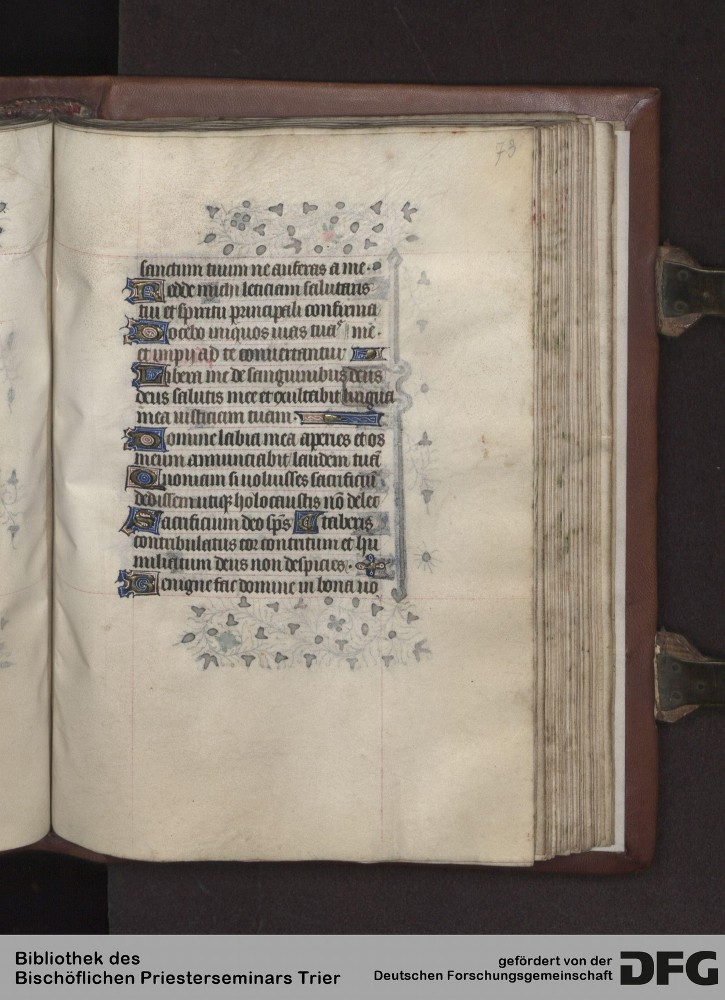 73
sanctum tuum ne auferas a me.
Redde michi leticiam salutaris
tui et spiritu principali confirma
Docebo iniquos uias tuas me.
et impij ad te conuertantur
Libera me de sanguinibus deus
deus salutis mee et exultabit lingua
mea iusticiam tuam.
Domine labia mea aperies et os
meum annunciabit laudem tuā
Quoniam si uoluisses sacrificiū
dedissem utiqꝫ holocaustis nō delec
Sacrificium deo sp̄s Ctaberis
contribulatus cor contritum et hu
miliatum deus non despicies.
Benigne fac domine in bona uo
Bibliothek des
Bischöflichen Priesterseminars Trier
gefördert von der
Deutschen Forschungsgemeinschaft
DFG